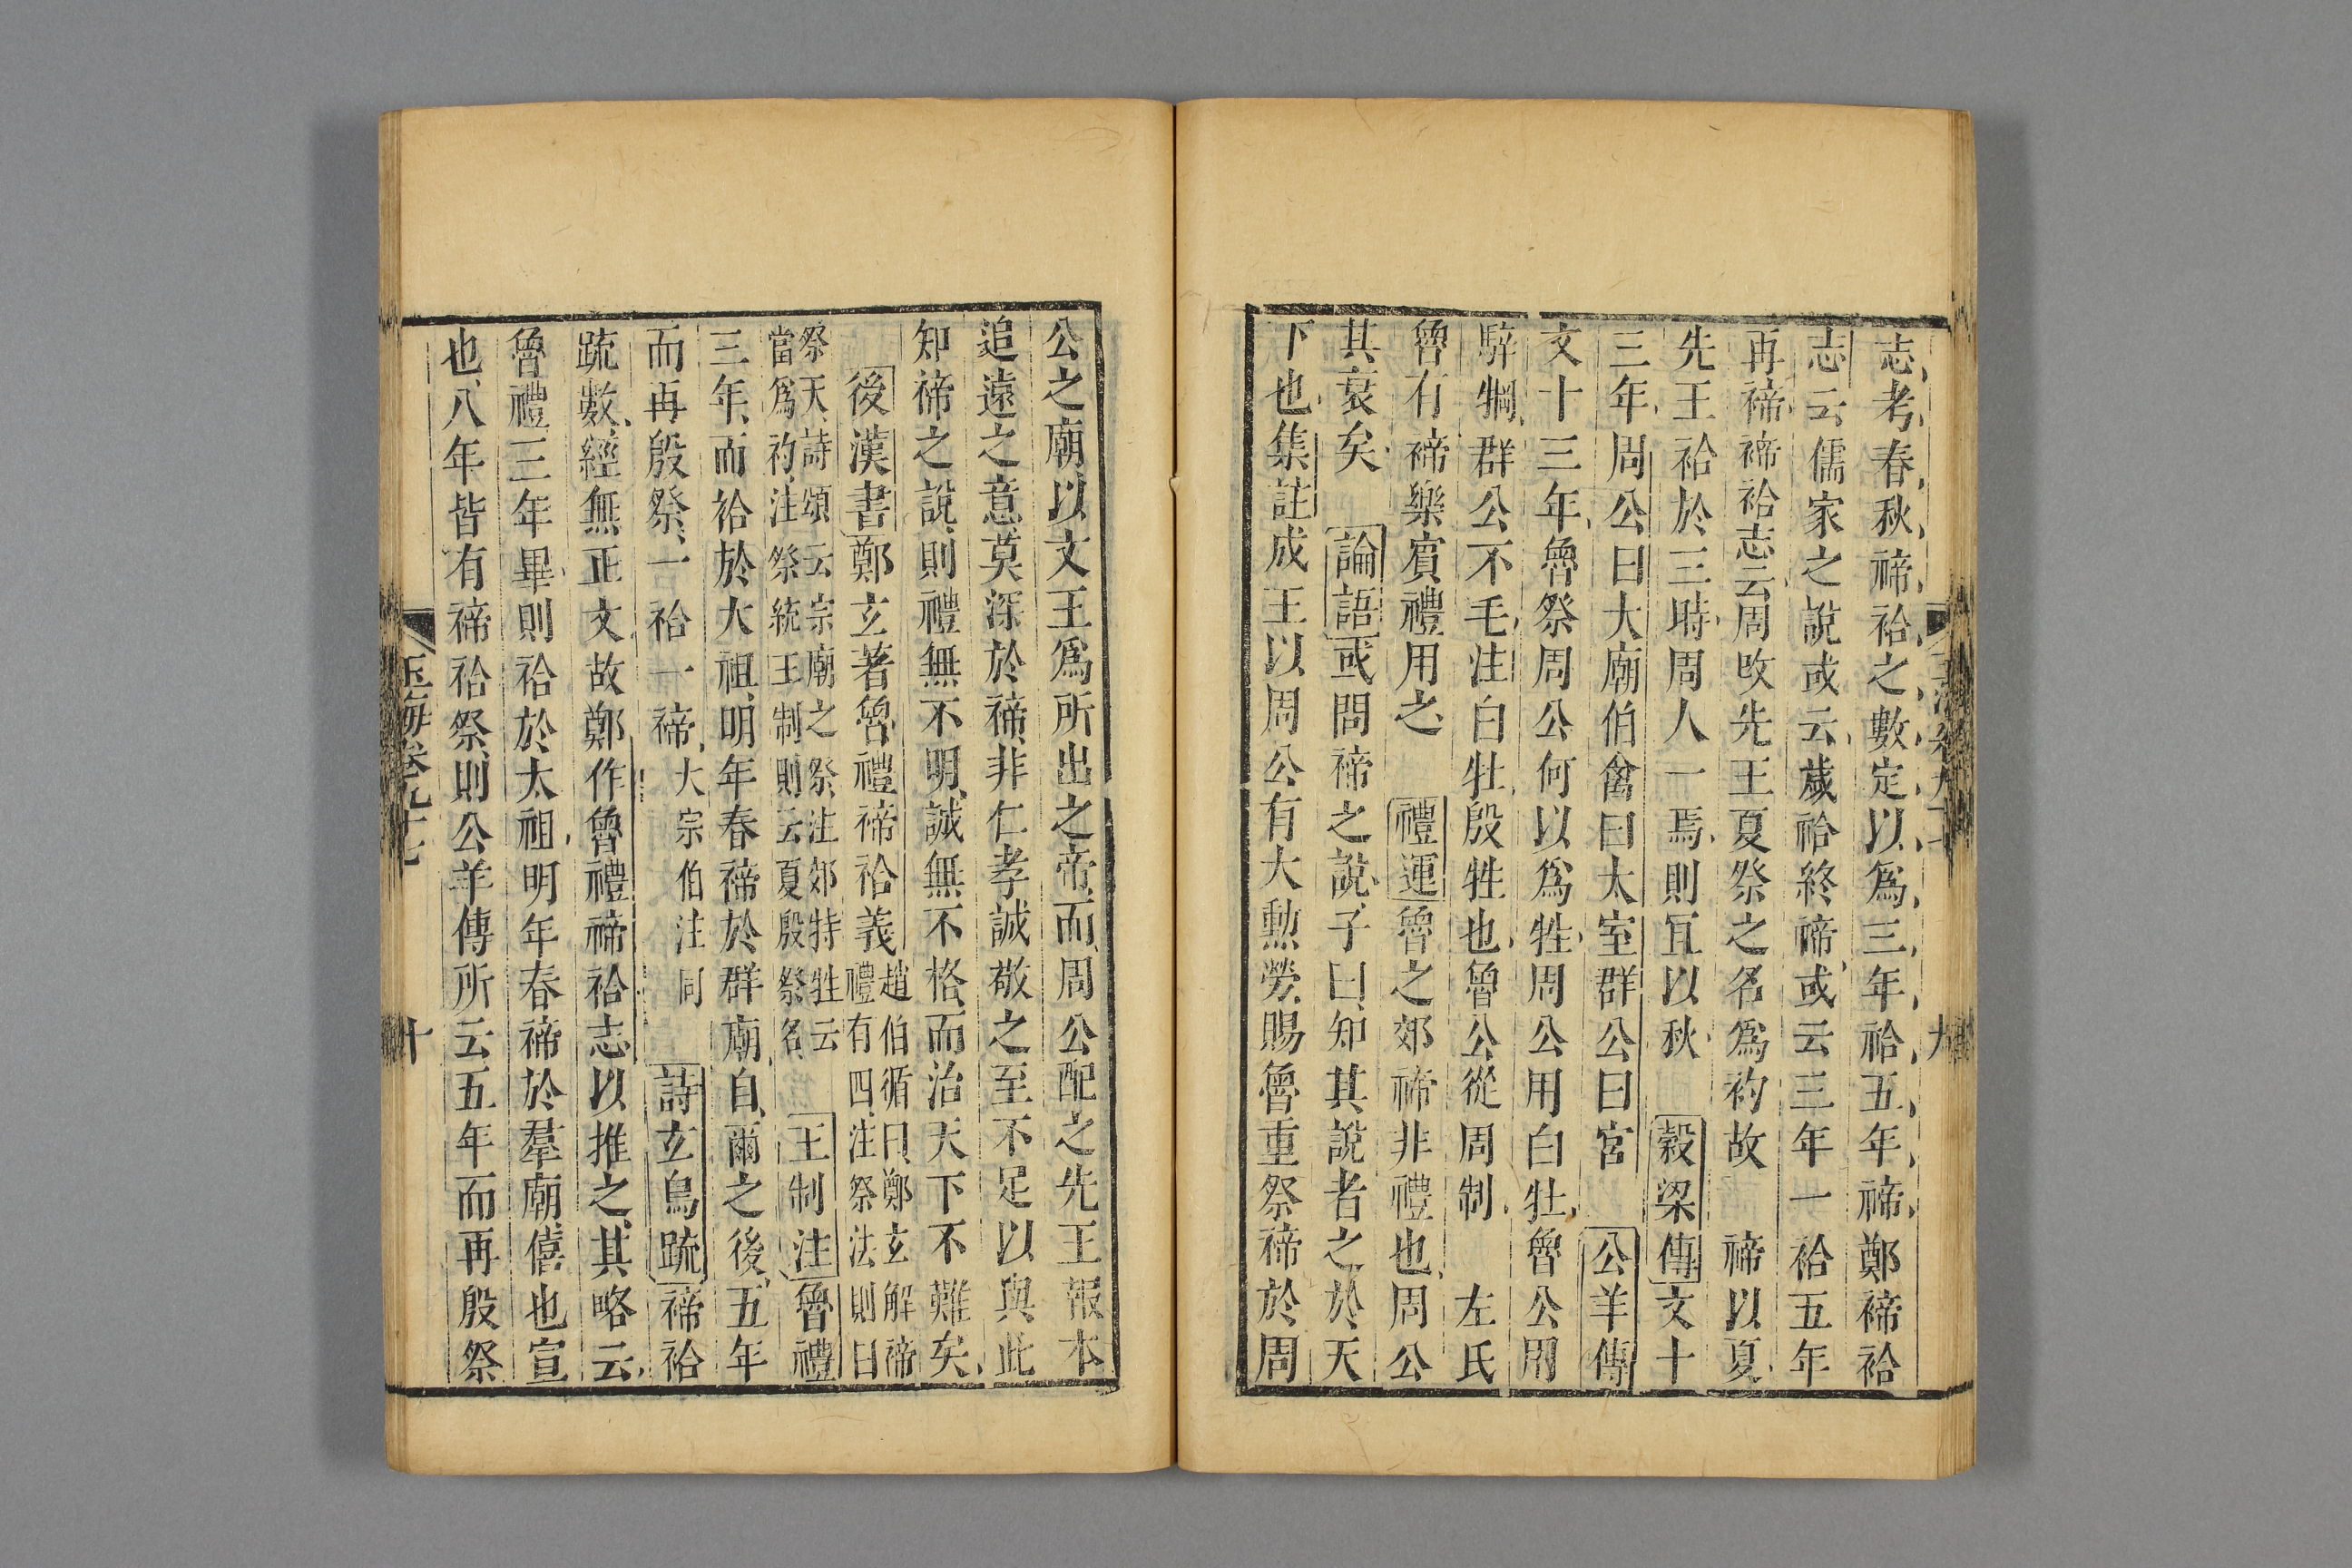 志考春秋禘祫之數定以爲三年祫五年禘鄭禘祫
志云儒家之說或云歲祫終禘或云三年一祫五年
再禘禘祫志云周改先王夏祭之名爲礿故 禘以夏
先王祫於三時周人一焉則宜以秋 穀梁傳文十
三年周公曰大廟伯禽曰太室群公曰宮 公羊傳
文十三年魯祭周公何以爲牲周公用白牡魯公用
騂犅群公不毛注白牡殷牲也魯公從周制 左氏
魯有禘樂賓禮用之 禮運魯之郊禘非禮也周公
其衰矣 論語或問禘之說子曰知其說者之於天
下也集註成王以周公有大勲勞賜魯重祭禘於周
公之廟以文王爲所出之帝而周公配之先王報本
追遠之意莫深於禘非仁孝誠敬之至不足以與此
知禘之說則禮無不明誠無不格而治天下不難矣
後漢書鄭玄著魯禮禘祫義趙伯循曰鄭玄解禘
禮有四注祭法則曰
祭天詩頌云宗廟之祭注郊特牲云
當爲礿注祭統王制則云夏殷祭名 王制注魯禮
三年而祫於大祖明年春禘於群廟自爾之後五年
而再殷祭一祫一禘大宗伯注同 詩玄鳥疏禘祫
疏數經無正文故鄭作魯禮禘祫志以推之其略云
魯禮三年畢則祫於太祖明年春禘於羣廟僖也宣
也八年皆有禘祫祭則公羊傳所云五年而再殷祭
玉海卷九十七
十